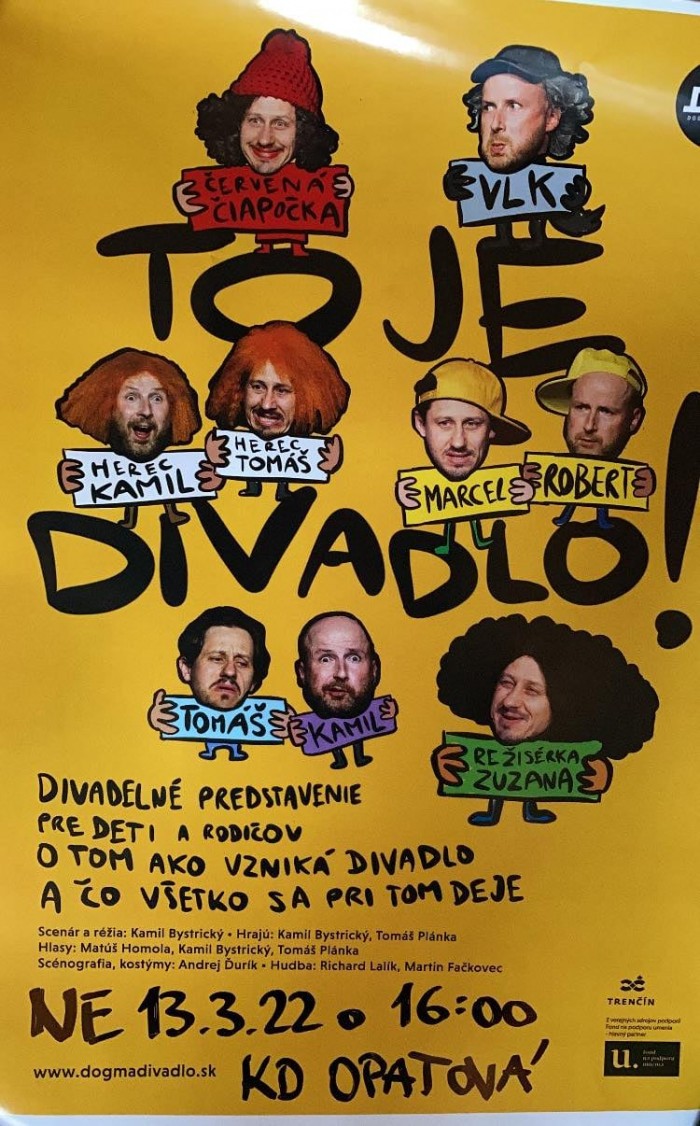 ČERVENÁ
ČIAPOČKA
VLK
TO JE
HEREC
KAMIL
HEREC
TOMÁŠ
MARCEL
ROBERT
DIVADLO!
TOMÁŠ
KAMIL
REŽISÉRKA
ZUZANA
DIVADELNÉ PREDSTAVENIE
PRE DETI A RODIČOV
O TOM AKO VZNIKÁ DIVADLO
A ČO VŠETKO SA PRI TOM DEJE
Scenár a réžia: Kamil Bystrický • Hrajú: Kamil Bystrický, Tomáš Plánka
Hlasy: Matúš Homola, Kamil Bystrický, Tomáš Plánka
Scénografia, kostýmy: Andrej Ďurík • Hudba: Richard Lalík, Martin Fačkovec
NE 13.3.22 o 16:00
KD OPATOVÁ
www.dogmadivadlo.sk
TRENČÍN
Z verejných zdrojov podporil
Fond na podporu umenia
- hlavný partner
u. fond
na podporu
umenia